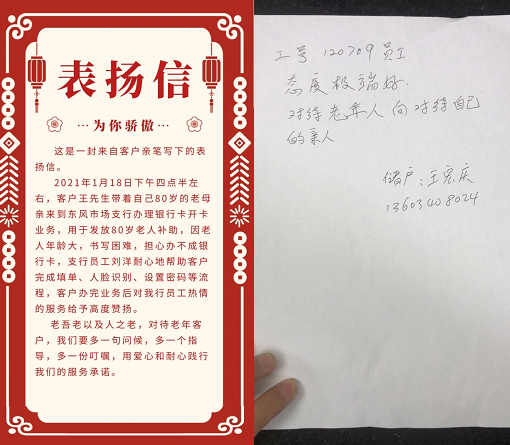 表扬信
···为你骄傲···
这是一封来自客户亲笔写下的表
扬信。
2021年1月18日下午四点半左
右，客户王先生带着自己80岁的老母
亲来到东风市场支行办理银行卡开卡
业务，用于发放80岁老人补助，因老
人年龄大，书写困难，担心办不成银
行卡，支行员工刘洋耐心地帮助客户
完成填单、人脸识别、设置密码等流
程，客户办完业务后对我行员工热情
的服务给予高度赞扬。
老吾老以及人之老，对待老年客
户，我们要多一句问候，多一个指
导，多一份叮嘱，用爱心和耐心践行
我们的服务承诺。
工号 120709 员工
态度极端好.
对待老年人向对待自己
的亲人
储户：王宏庆
13603408024